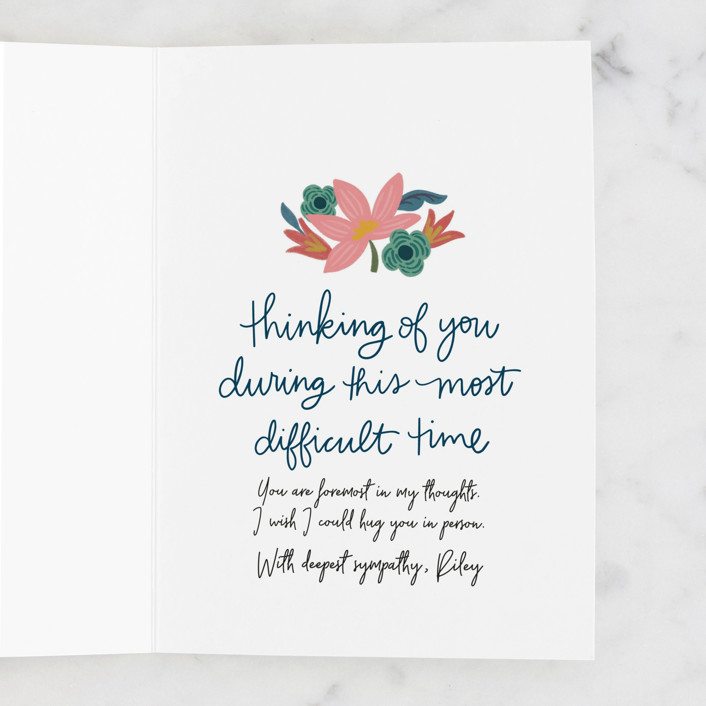 thinking of you
during this most
difficult time
You are foremost in my thoughts.
I wish I could hug you in person.
With deepest sympathy, Riley